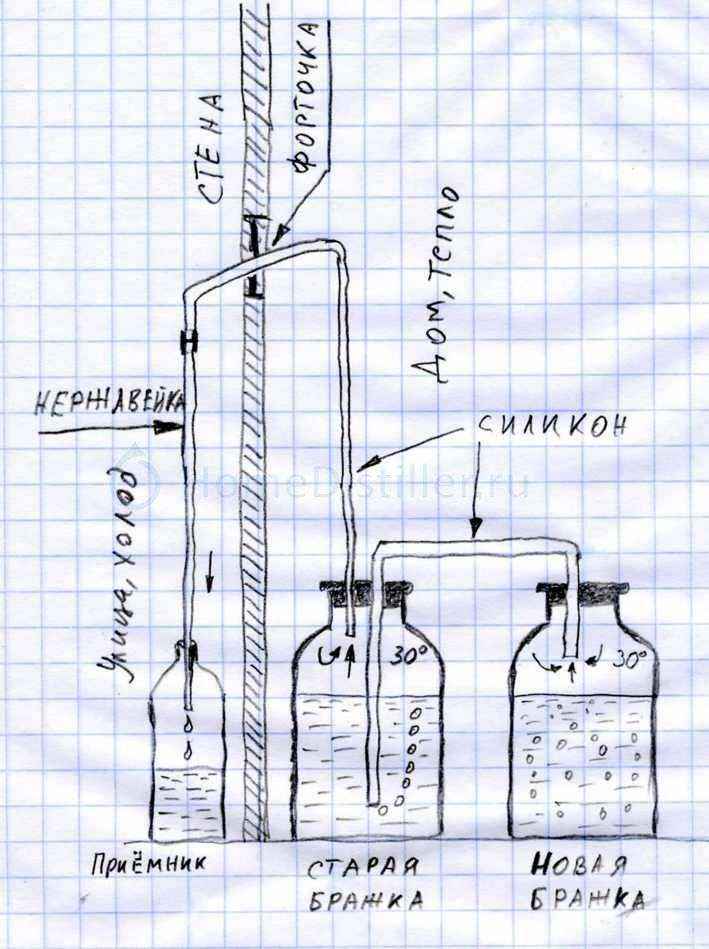 СТЕНА
ФОРТОЧКА
ДОМ, ТЕПЛО
НЕРЖАВЕЙКА
СИЛИКОН
HomeDistiller.ru
Улица, холод
30°
30°
Приёмник
СТАРАЯ
БРАЖКА
НОВАЯ
БРАЖКА